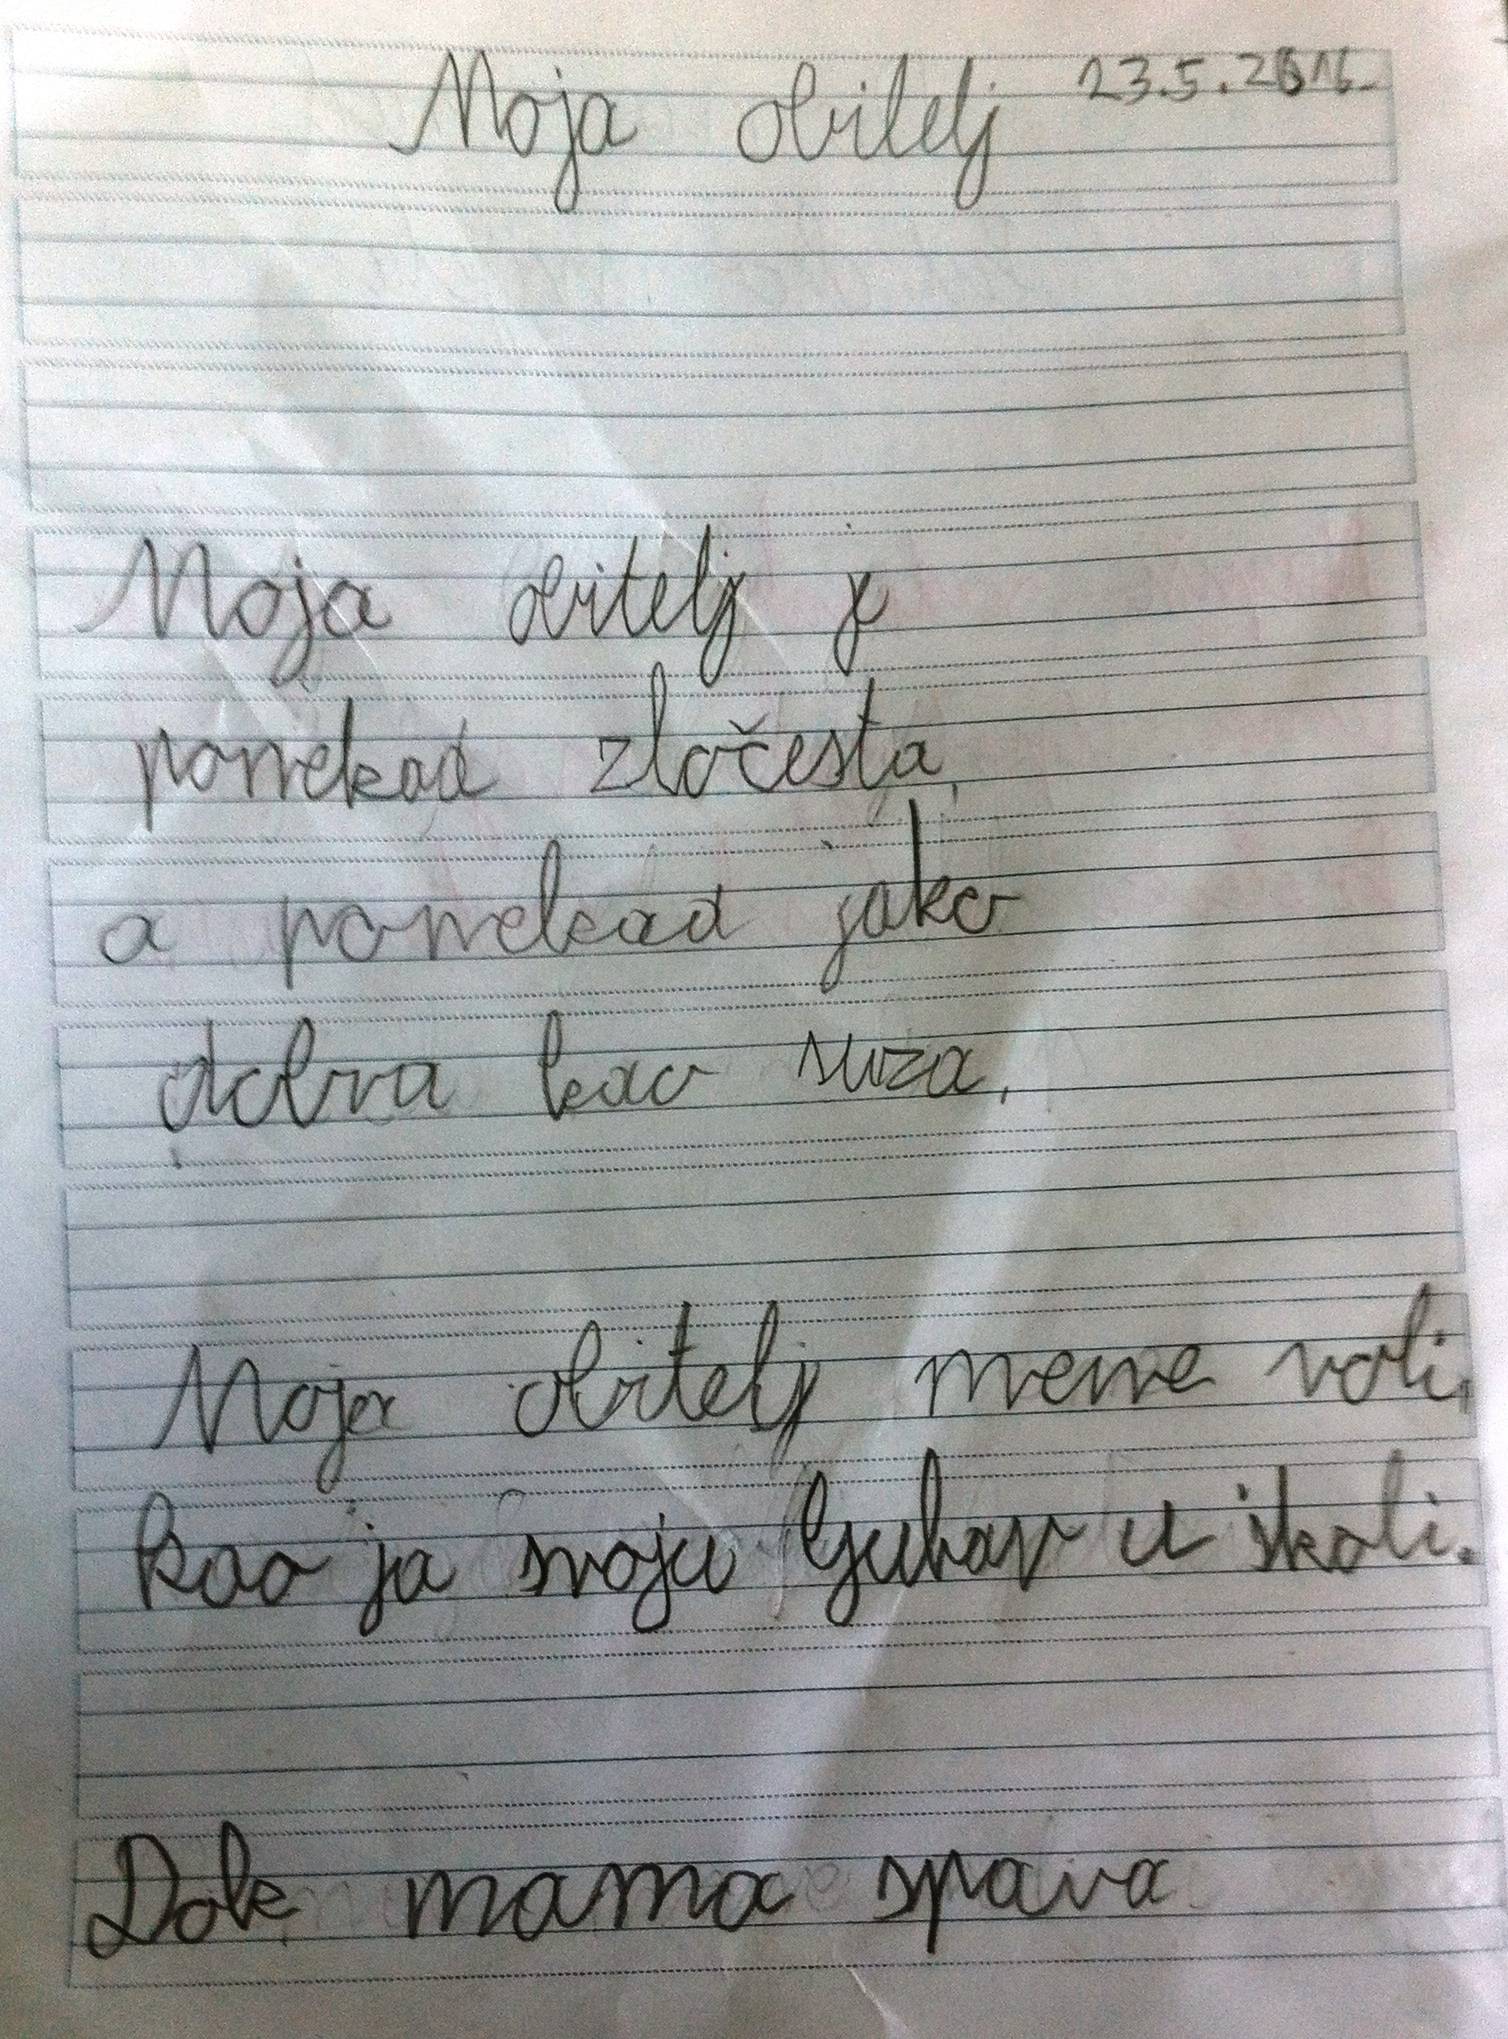 Moja obitelj 23.5.2016.
Moja obitelj je
ponekad zločesta,
a ponekad jako
dobra kao suza.
Moja obitelj mene voli,
kao ja svoju ljubav u školi.
Dok mama spava